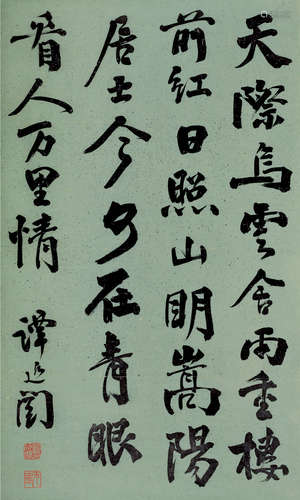 天際烏雲含雨重樓
前紅日照山明嵩陽
居士今何在青眼
看人万里情
譚延闓